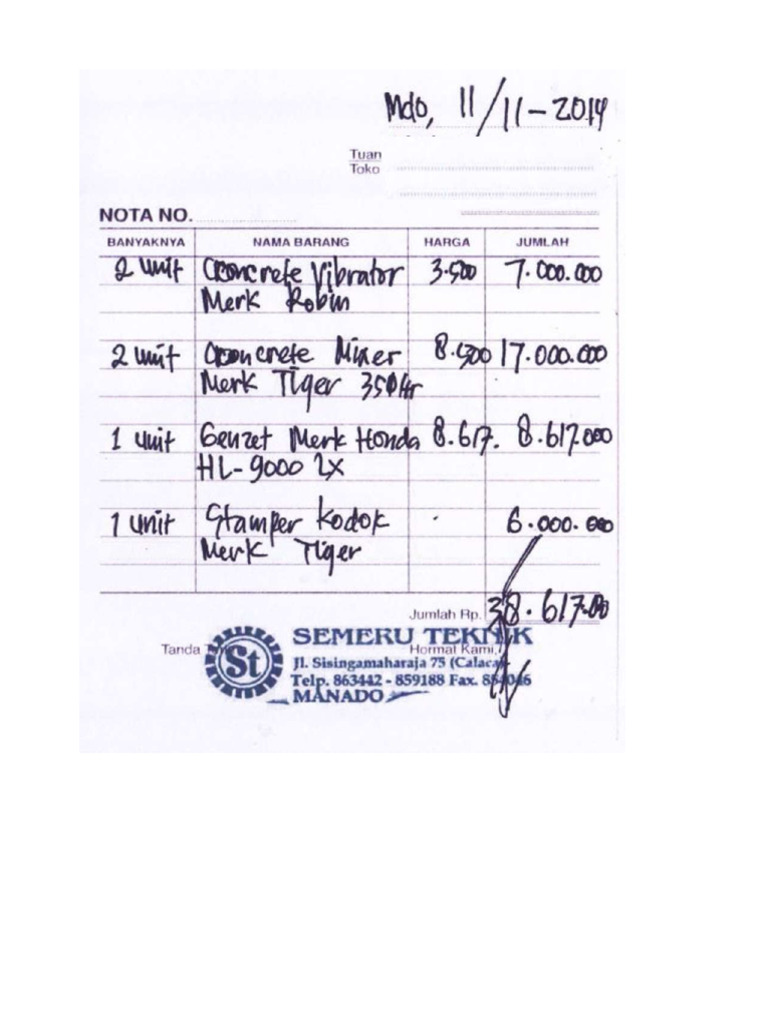 Mdo, 11/11-2014
Tuan
Toko
NOTA NO.
BANYAKNYA NAMA BARANG HARGA JUMLAH
2 unit Concrete Vibrator 3.500 7.000.000
Merk Robin
2 unit Concrete Mixer 8.500 17.000.000
Merk Tiger 350 ltr
1 unit Genzet Merk Honda 8.617. 8.617.000
HL-9000 LX
1 unit Stamper Kodok 6.000.000
Merk Tiger
Jumlah Rp. 38.617.00
SEMERU TEKNIK
Tanda Hormat Kami,
St
Jl. Sisingamaharaja 75 (Calaca)
Telp. 863442 - 859188 Fax.
MANADO